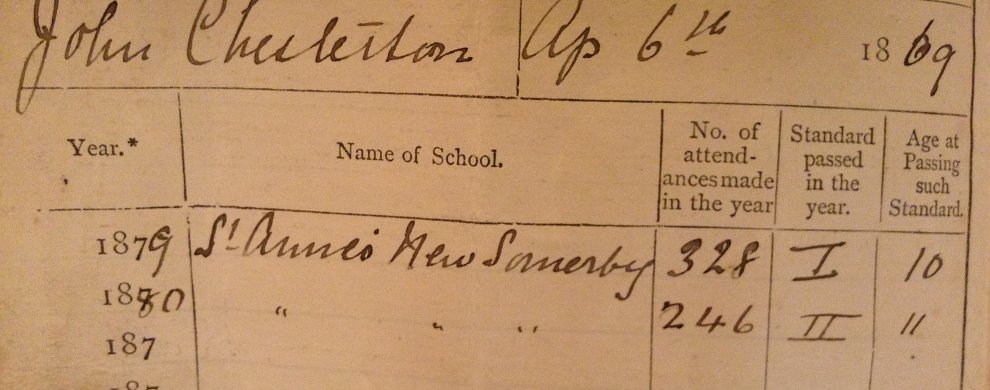 John Chesletton Ap 6th 1869
Year.* Name of School. No. of attend-ances made in the year Standard passed in the year. Age at Passing such Standard.
1879 St. Anne's New Somerby 328 I 10
1880 " " " 246 II 11
187
187